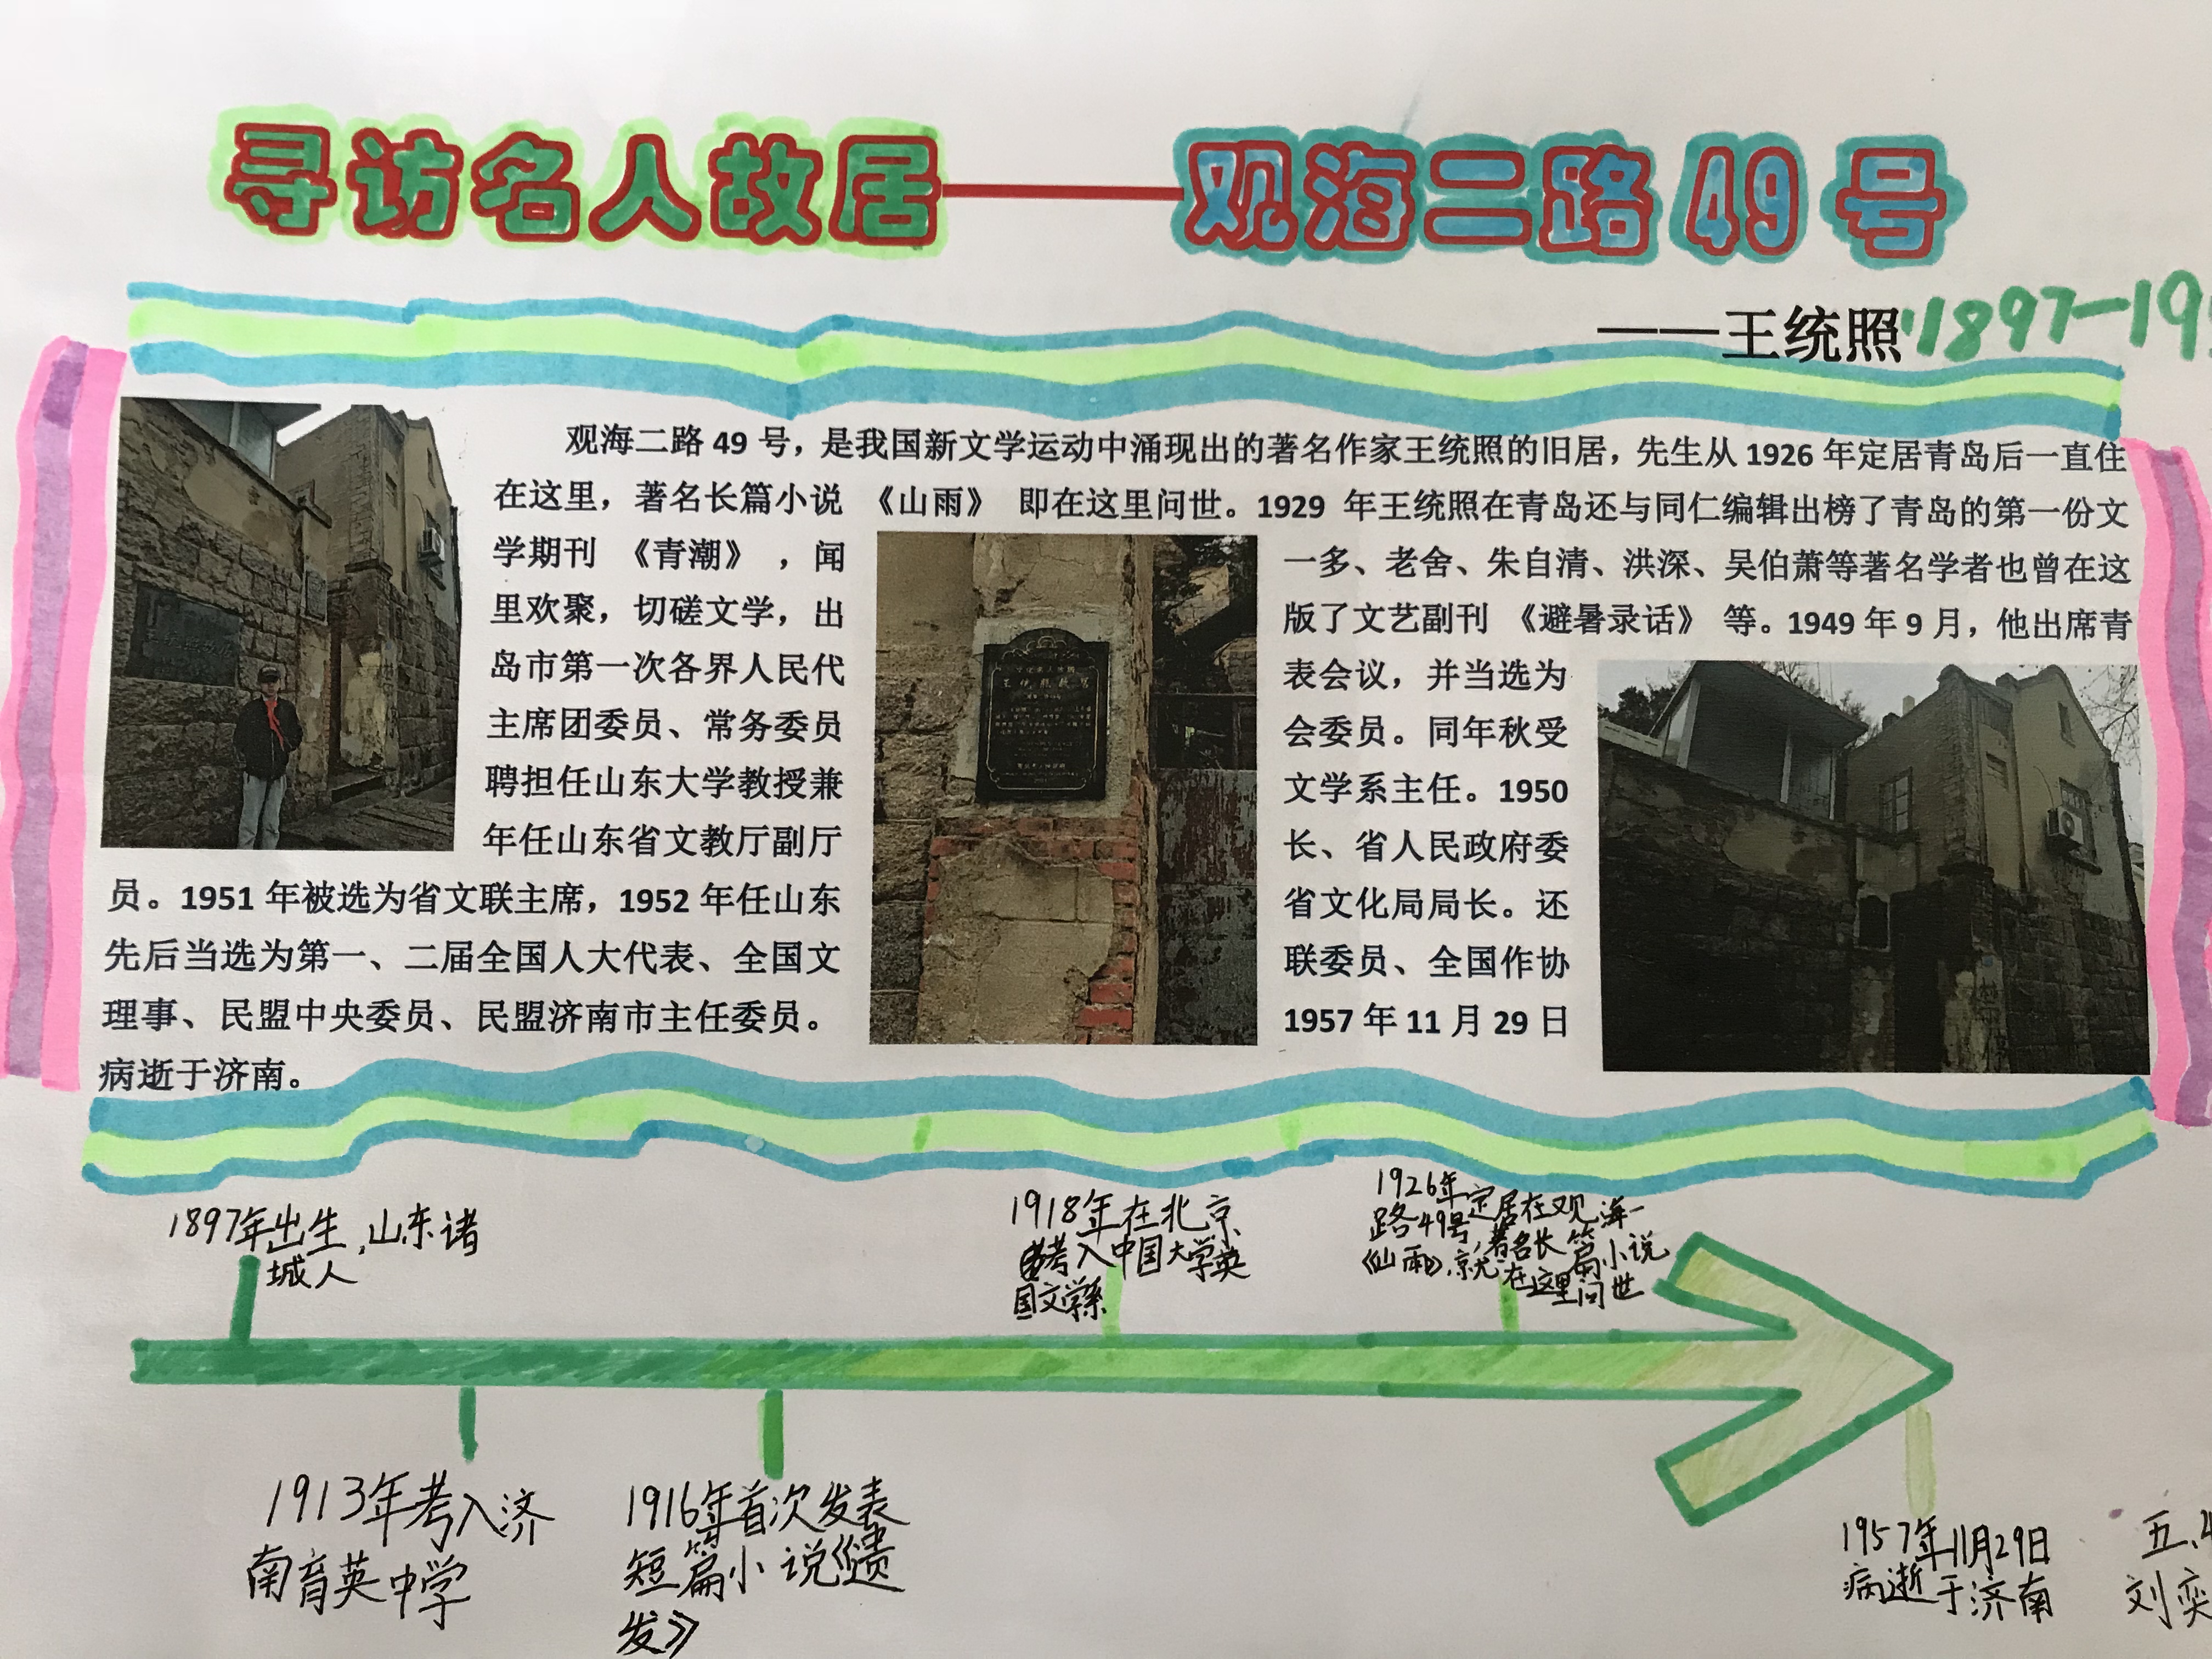 寻访名人故居——观海二路49号
——王统照 1897-19
观海二路 49 号，是我国新文学运动中涌现出的著名作家王统照的旧居，先生从 1926 年定居青岛后一直住
在这里，著名长篇小说 《山雨》 即在这里问世。1929 年王统照在青岛还与同仁编辑出榜了青岛的第一份文
学期刊 《青潮》 ，闻一多、老舍、朱自清、洪深、吴伯萧等著名学者也曾在这
里欢聚，切磋文学，出版了文艺副刊 《避暑录话》 等。1949 年 9 月，他出席青
岛市第一次各界人民代表会议，并当选为
主席团委员、常务委员会委员。同年秋受
聘担任山东大学教授兼文学系主任。1950
年任山东省文教厅副厅长、省人民政府委
员。1951 年被选为省文联主席，1952 年任山东省文化局局长。还
先后当选为第一、二届全国人大代表、全国文联委员、全国作协
理事、民盟中央委员、民盟济南市主任委员。1957 年 11 月 29 日
病逝于济南。
1897年出生,山东诸
城人
1913年考入济
南育英中学
1916年首次发表
短篇小说《遗
发》
1918年在北京
考入中国大学英
国文学系
1926年定居在观海一
路49号,著名长篇小说
《山雨》就在这里问世
1957年11月29日
病逝于济南
五.
刘奕